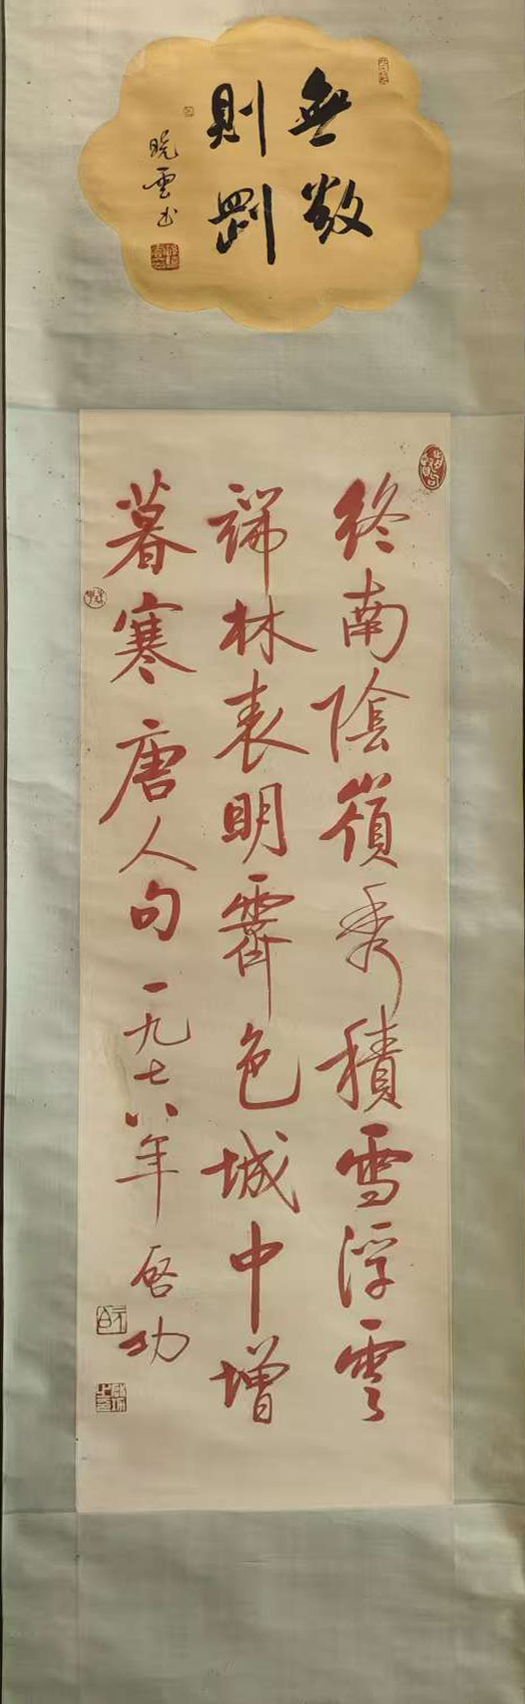 無欲
則剛
晓雲书
終南陰嶺秀積雪浮雲
端林表明霽色城中增
暮寒唐人句 一九七八年 启功